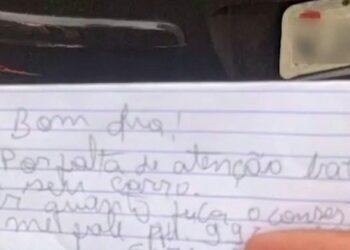 Bom dia!
Por falta de atenção bat
seu carro.
r quanto fica o conser
me fale pel 99